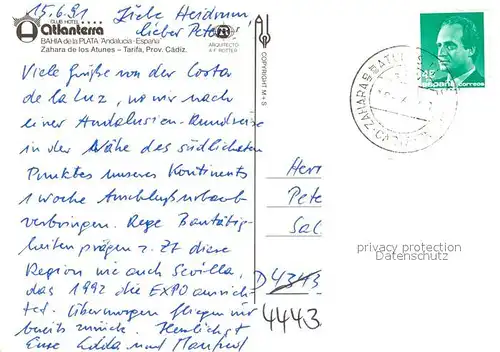 15.6.91 Liebe Heidrun,
lieber Peter
CLUB HOTEL
Atlanterra
BAHIA de la PLATA "Andalucia-España"
Zahara de los Atunes - Tarifa, Prov. Cádiz.
ARQUITECTO:
A.F. ROTTER
COPYRIGHT M-S
Viele Grüße von der Costa
de la Luz, wo wir nach
einer Andalusien-Rundreise
in der Nähe des südlichsten
Punktes unseres Kontinents
1 Woche Anschlußurlaub
verbringen. Rege Bautätig-
keiten prägen z. Zt diese
Region wie auch Sevilla,
das 1992 die EXPO ausrich-
tet. Übermorgen fliegen wir
bereits zurück. Herzlichst
Eure Edda und Manfred
España correos
Herr
Pete
Sal
privacy protection
Datenschutz
D 4343
4443